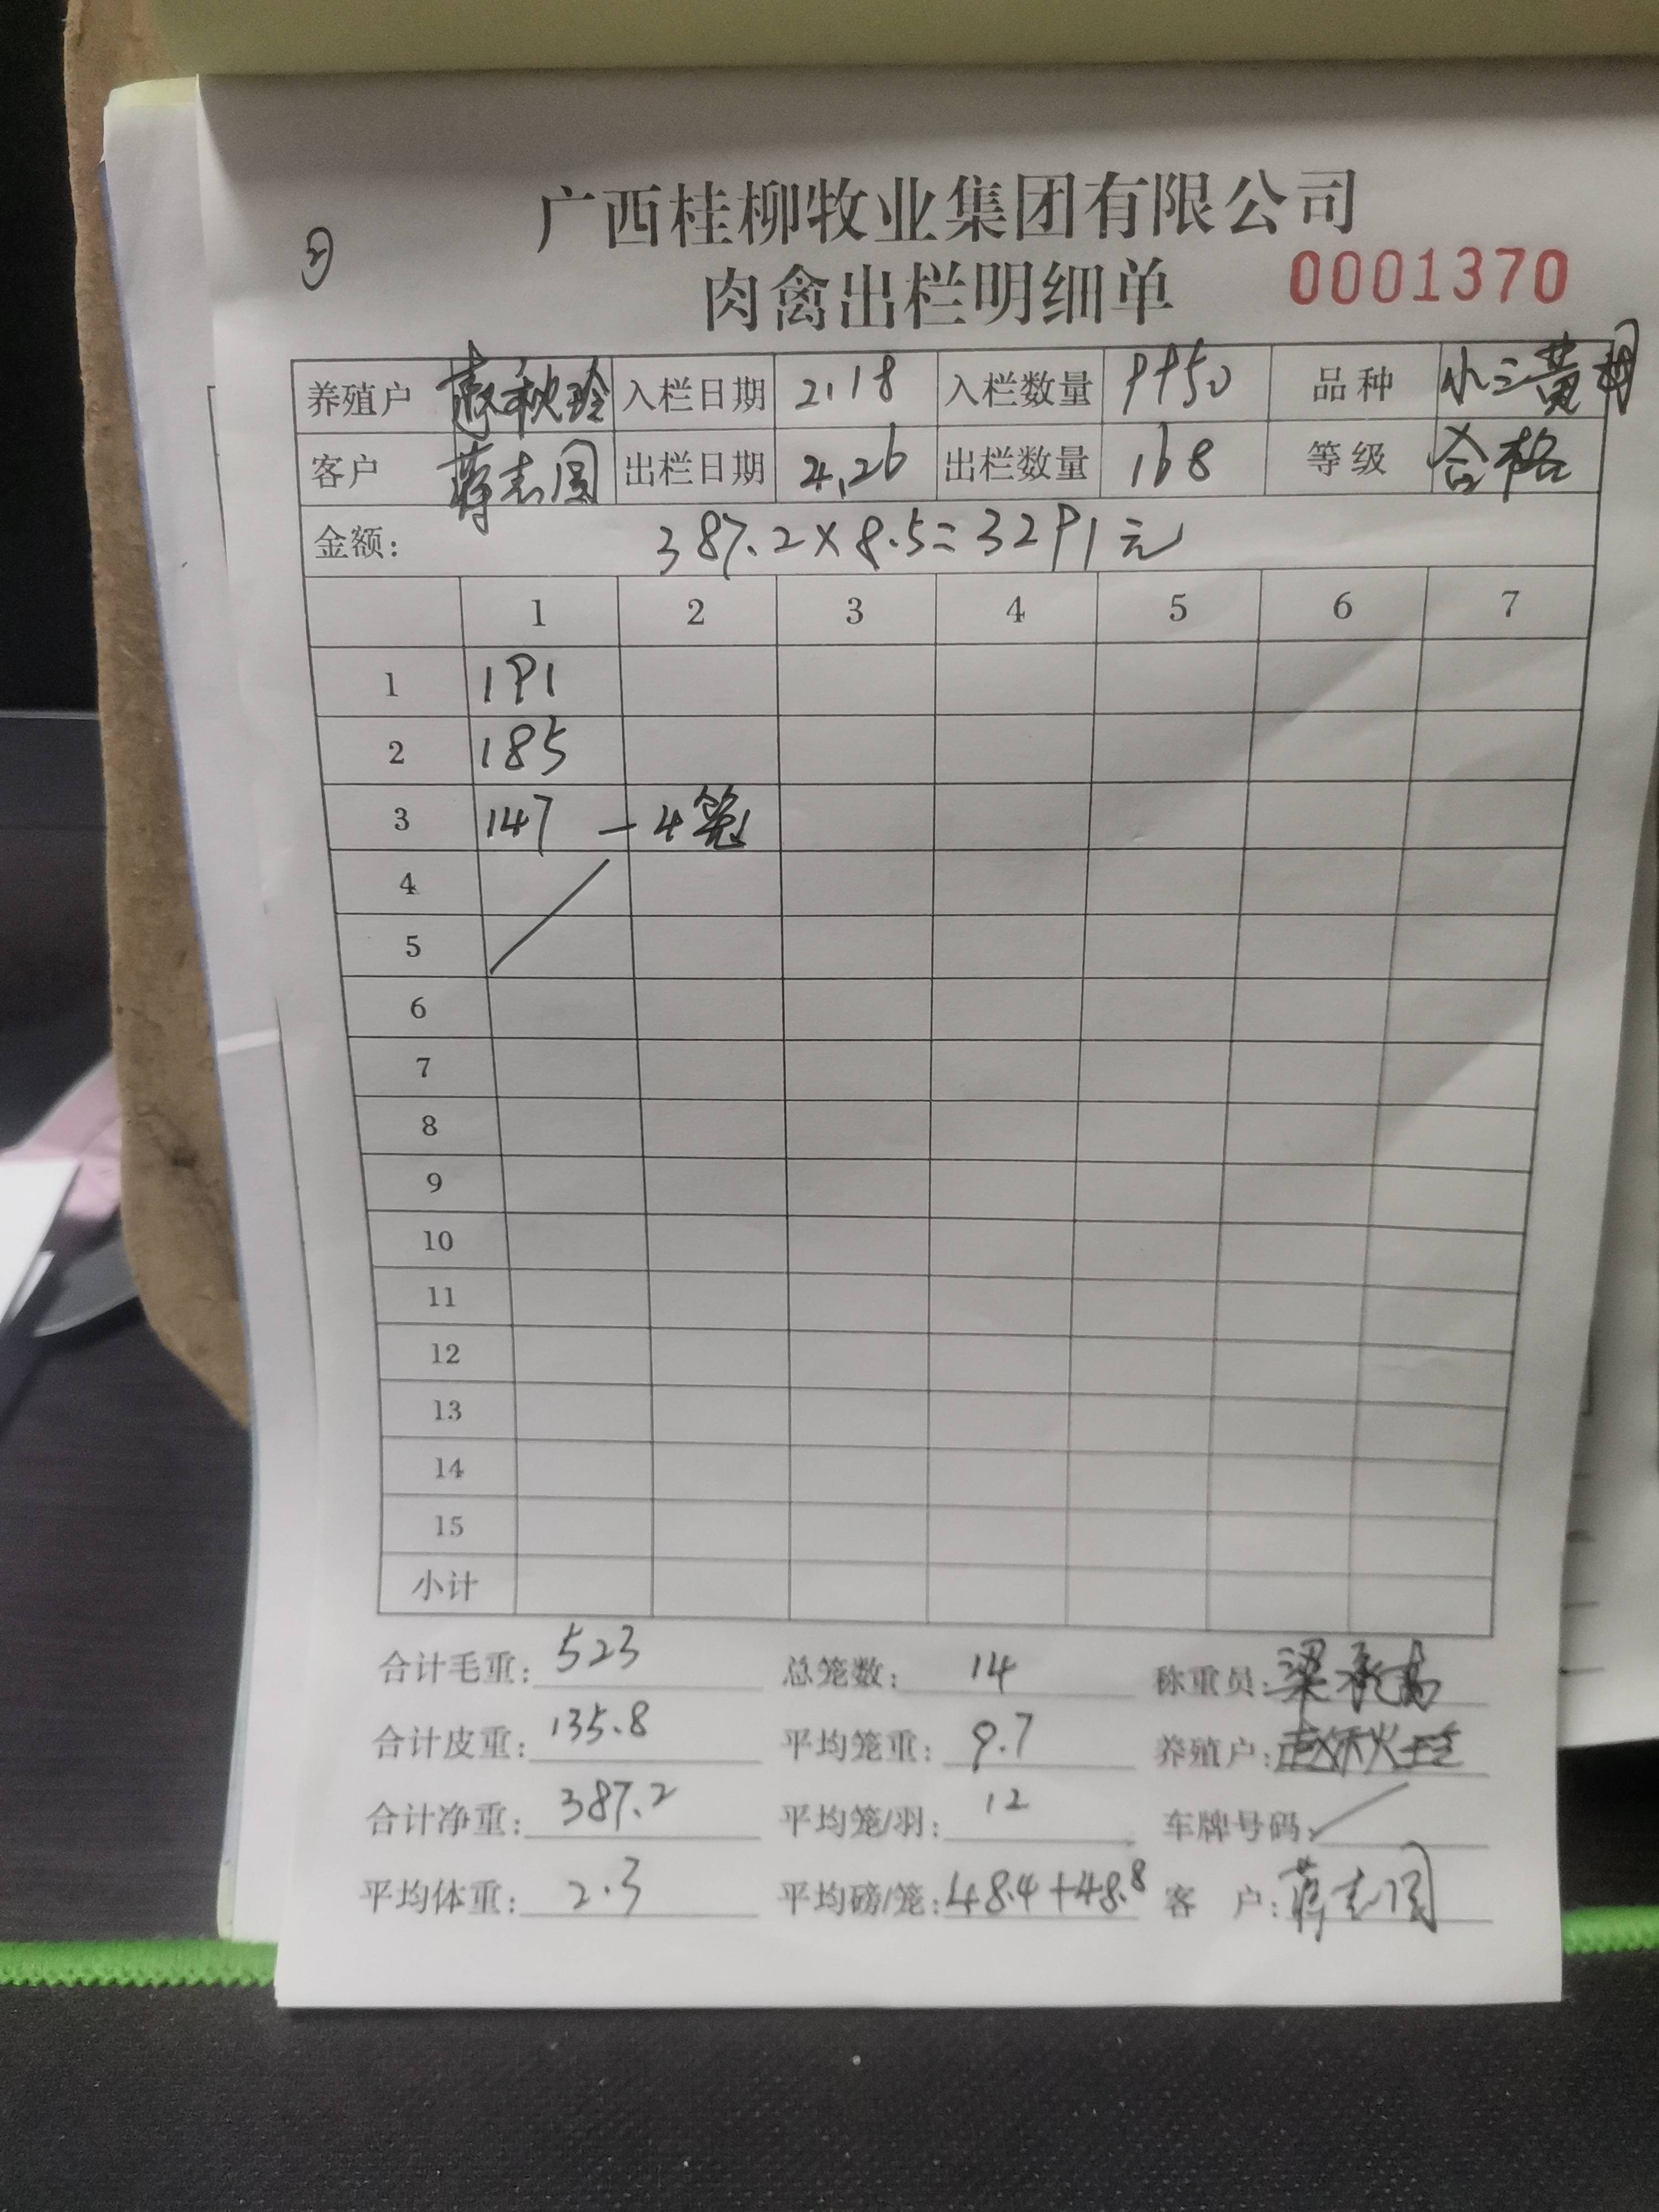 广西桂柳牧业集团有限公司
肉禽出栏明细单 0001370
养殖户 秋玲 入栏日期 2.18 入栏数量 9950 品种 小三黄
客户 蒋志国 出栏日期 4.26 出栏数量 168 等级 合格
金额: 387.2×8.5=3291元
1 2 3 4 5 6 7
1 191
2 185
3 147 — 4笼
4
5
6
7
8
9
10
11
12
13
14
15
小计
合计毛重: 523 总笼数: 14 称重员: 梁承高
合计皮重: 135.8 平均笼重: 9.7 养殖户: 秋玲
合计净重: 387.2 平均笼/羽: 12 车牌号码:
平均体重: 2.3 平均磅/笼: 48.4+48.8 客户: 蒋志国